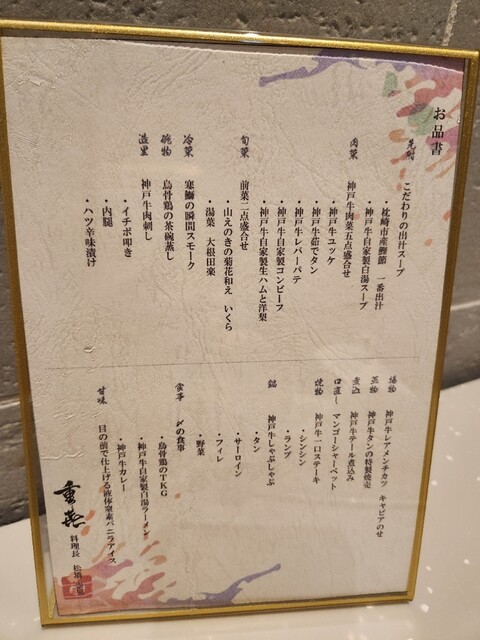 お品書
先附 こだわりの出汁スープ
・枕崎市産鰹節 一番出汁
・神戸牛自家製白湯スープ
肉菜 神戸牛肉菜五点盛合せ
・神戸牛ユッケ
・神戸牛茹でタン
・神戸牛レバーパテ
・神戸牛自家製コンビーフ
・神戸牛自家製生ハムと洋梨
旬菜 前菜二点盛合せ
・山えのきの菊花和え いくら
・湯葉 大根田楽
冷菜 寒鰤の瞬間スモーク
椀物 烏骨鶏の茶碗蒸し
造里 神戸牛肉刺し
・イチボ叩き
・内腿
・ハツ辛味漬け
揚物 神戸牛レアメンチカツ キャビアのせ
蒸物 神戸牛タンの特製焼売
煮込 神戸牛テール煮込み
口直し マンゴーシャーベット
焼物 神戸牛一口ステーキ
・シンシン
・ランプ
鍋 神戸牛しゃぶしゃぶ
・タン
・サーロイン
・フィレ
・野菜
食事 〆の食事
・烏骨鶏のTKG
・神戸牛自家製白湯ラーメン
・神戸牛カレー
甘味 目の前で仕上げる液体窒素バニラアイス
重喜 料理長 松